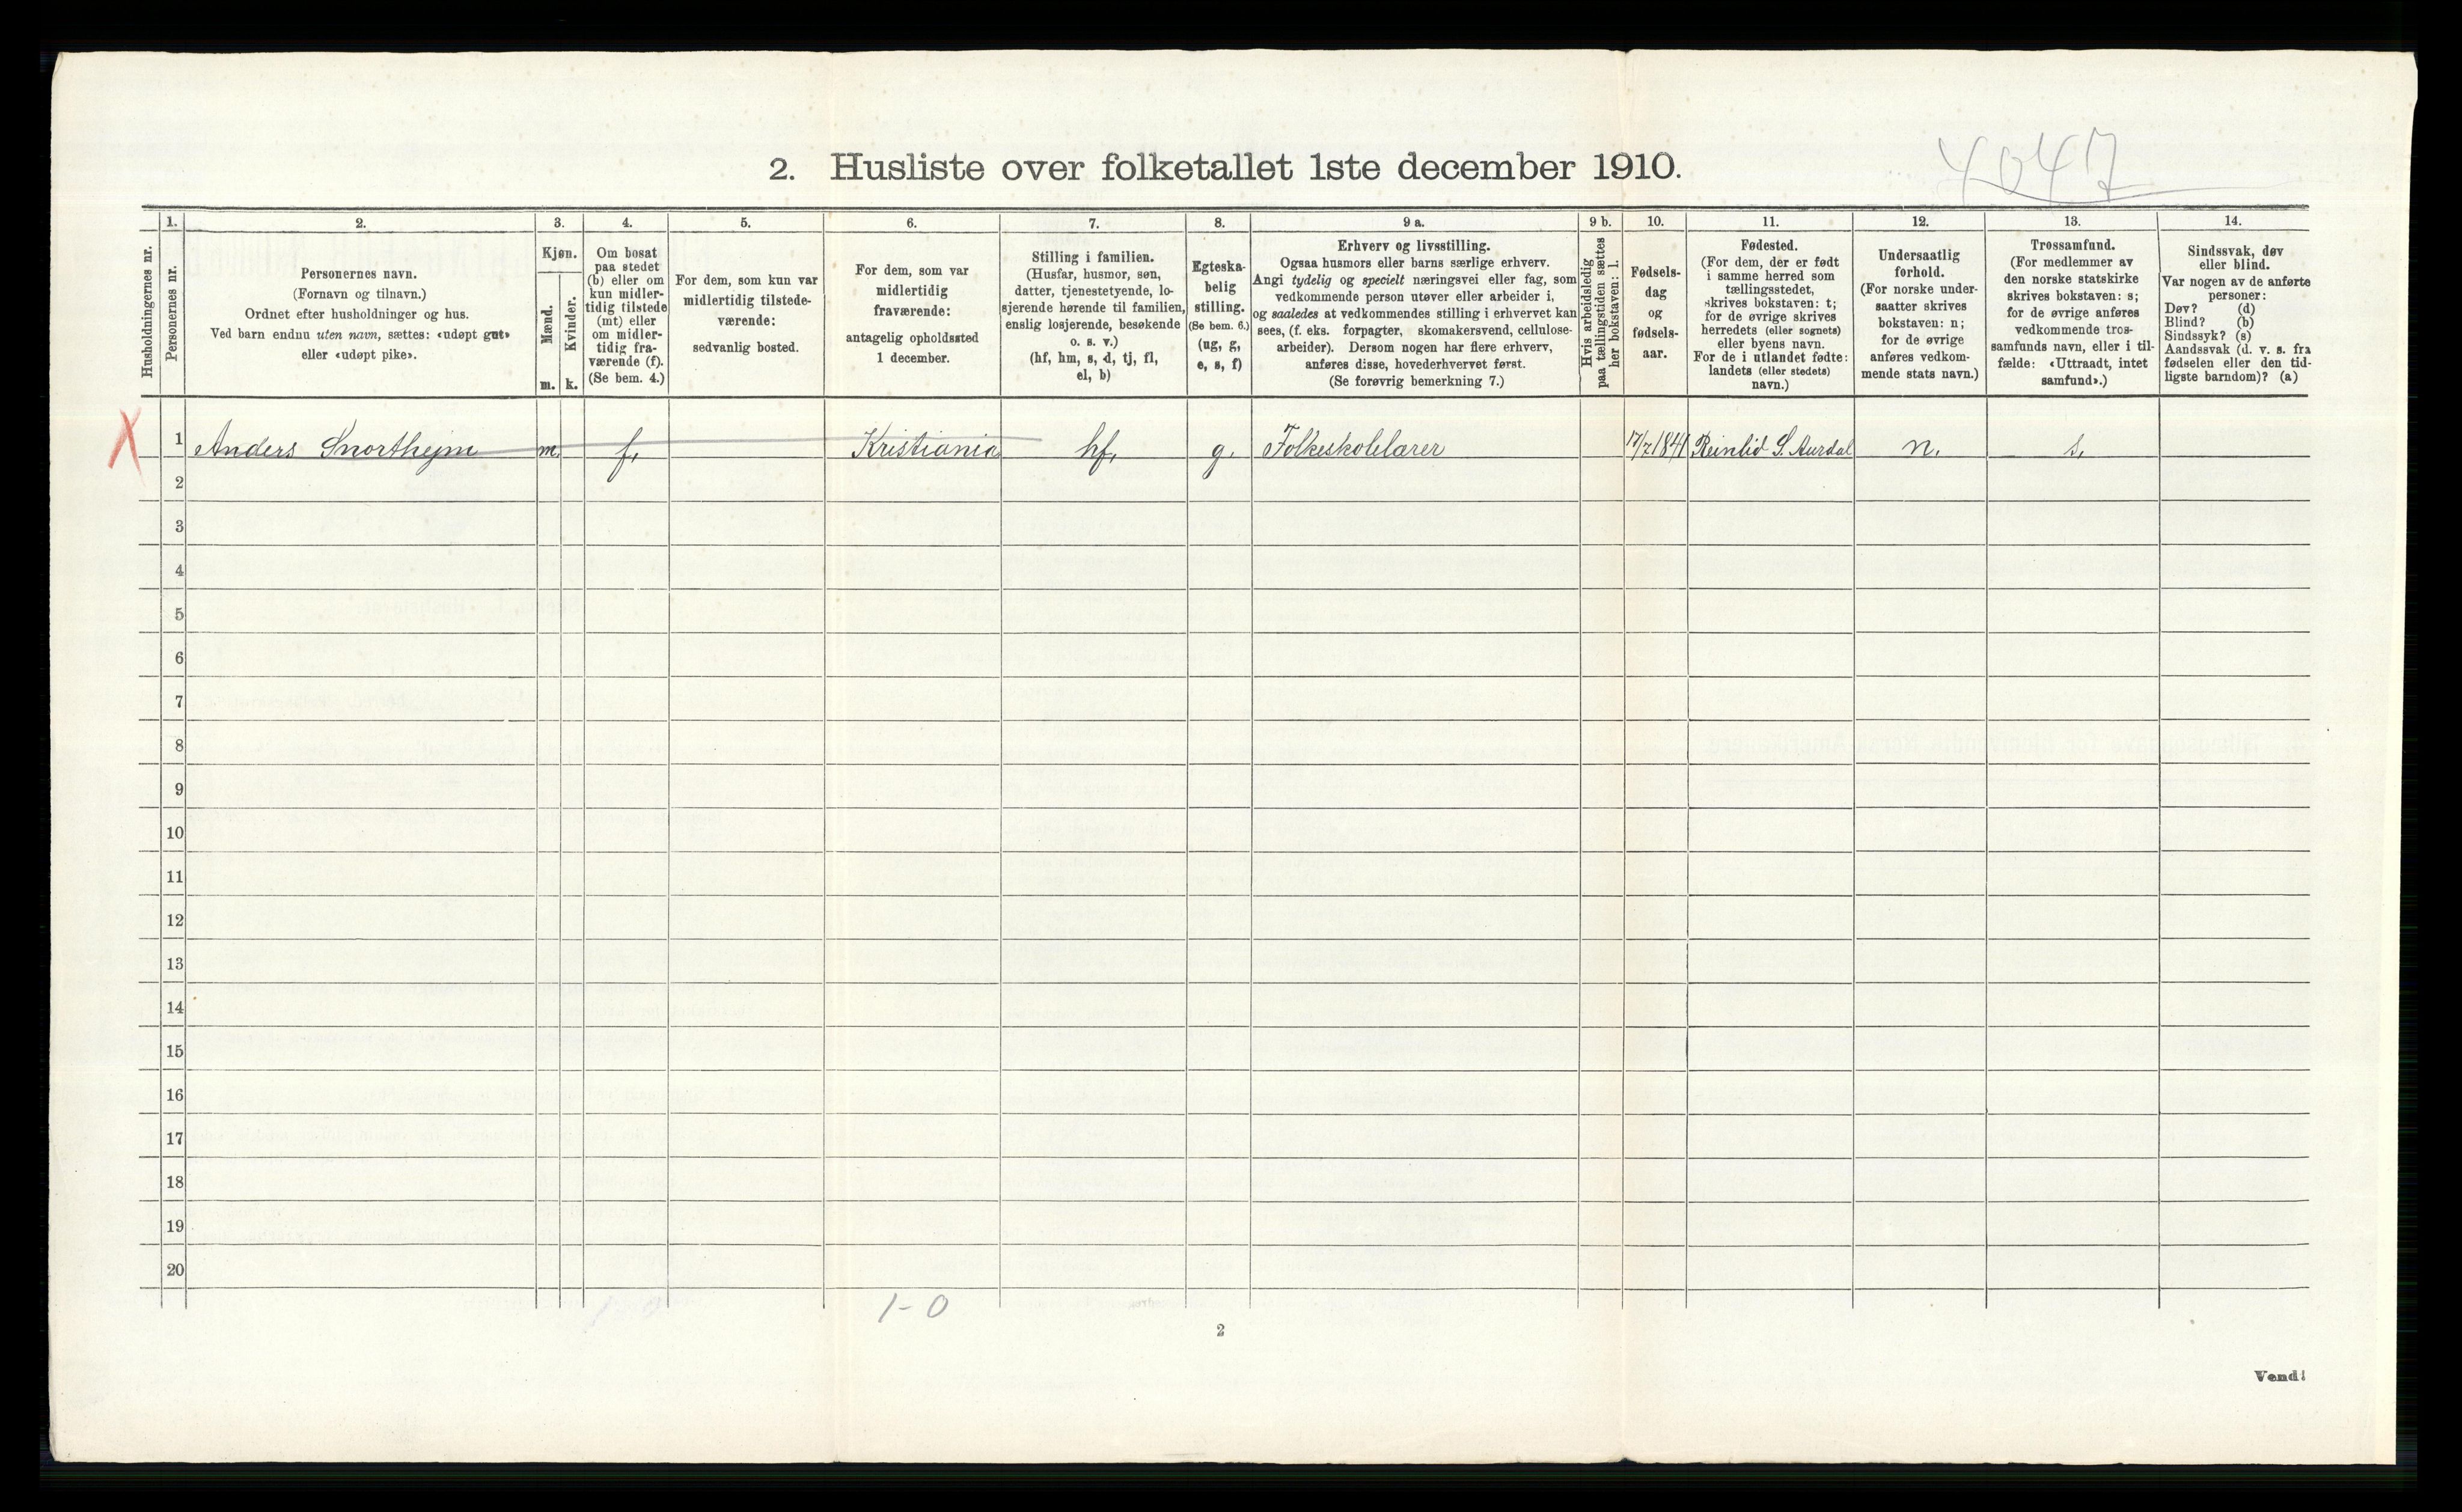 4047
2. Husliste over folketallet 1ste december 1910.
Husholdningernes nr.
1.
Personernes nr.
2.
Personernes navn.
(Fornavn og tilnavn.)
Ordnet efter husholdninger og hus.
Ved barn endnu uten navn, sættes: «udøpt gut»
eller «udøpt pike».
3.
Kjøn.
Mænd.
m.
Kvinder.
k.
4.
Om bosat
paa stedet
(b) eller om
kun midler-
tidig tilstede
(mt) eller
om midler-
tidig fra-
værende (f).
(Se bem. 4.)
5.
For dem, som kun var
midlertidig tilstede-
værende:
sedvanlig bosted.
6.
For dem, som var
midlertidig
fraværende:
antagelig opholdssted
1 december.
7.
Stilling i familien.
(Husfar, husmor, søn,
datter, tjenestetyende, lo-
sjerende hørende til familien,
enslig losjerende, besøkende
o. s. v.)
(hf, hm, s, d, tj, fl,
el, b)
8.
Egteska-
belig
stilling.
(Se bem. 6.)
(ug, g,
e, s, f)
9 a.
Erhverv og livsstilling.
Ogsaa husmors eller barns særlige erhverv.
Angi tydelig og specielt næringsvei eller fag, som
vedkommende person utøver eller arbeider i,
og saaledes at vedkommendes stilling i erhvervet kan
sees, (f. eks. forpagter, skomakersvend, cellulose-
arbeider). Dersom nogen har flere erhverv,
anføres disse, hovederhvervet først.
(Se forøvrig bemerkning 7.)
9 b.
Hvis arbeidsledig
paa tællingstiden sættes
her bokstaven: l.
10.
Fødsels-
dag
og
fødsels-
aar.
11.
Fødested.
(For dem, der er født
i samme herred som
tællingsstedet,
skrives bokstaven: t;
for de øvrige skrives
herredets (eller sognets)
eller byens navn.
For de i utlandet fødte:
landets (eller stedets)
navn.)
12.
Undersaatlig
forhold.
(For norske under-
saatter skrives
bokstaven: n;
for de øvrige
anføres vedkom-
mende stats navn.)
13.
Trossamfund.
(For medlemmer av
den norske statskirke
skrives bokstaven: s;
for de øvrige anføres
vedkommende tros-
samfunds navn, eller i til-
fælde: «Uttraadt, intet
samfund».)
14.
Sindssvak, døv
eller blind.
Var nogen av de anførte
personer:
Døv? (d)
Blind? (b)
Sindssyk? (s)
Aandssvak (d. v. s. fra
fødselen eller den tid-
ligste barndom)? (a)
X 1 Anders Snortheim m. f. Kristiania hf. g. Folkeskolelærer 17/7 1841 Reinlid S. Aurdal n. s.
2
3
4
5
6
7
8
9
10
11
12
13
14
15
16
17
18
19
20
1-0
2
Vend!